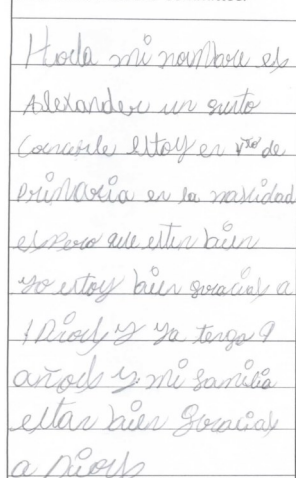 Hoola mi nombare es
Alexander un gusto
Conoserle estoy en de
primaria en la navidad
espero que esten bien
yo estoy bien gracias a
Diods y ya tengo 9
añods y mi familia
estan bien gracias
a Diods